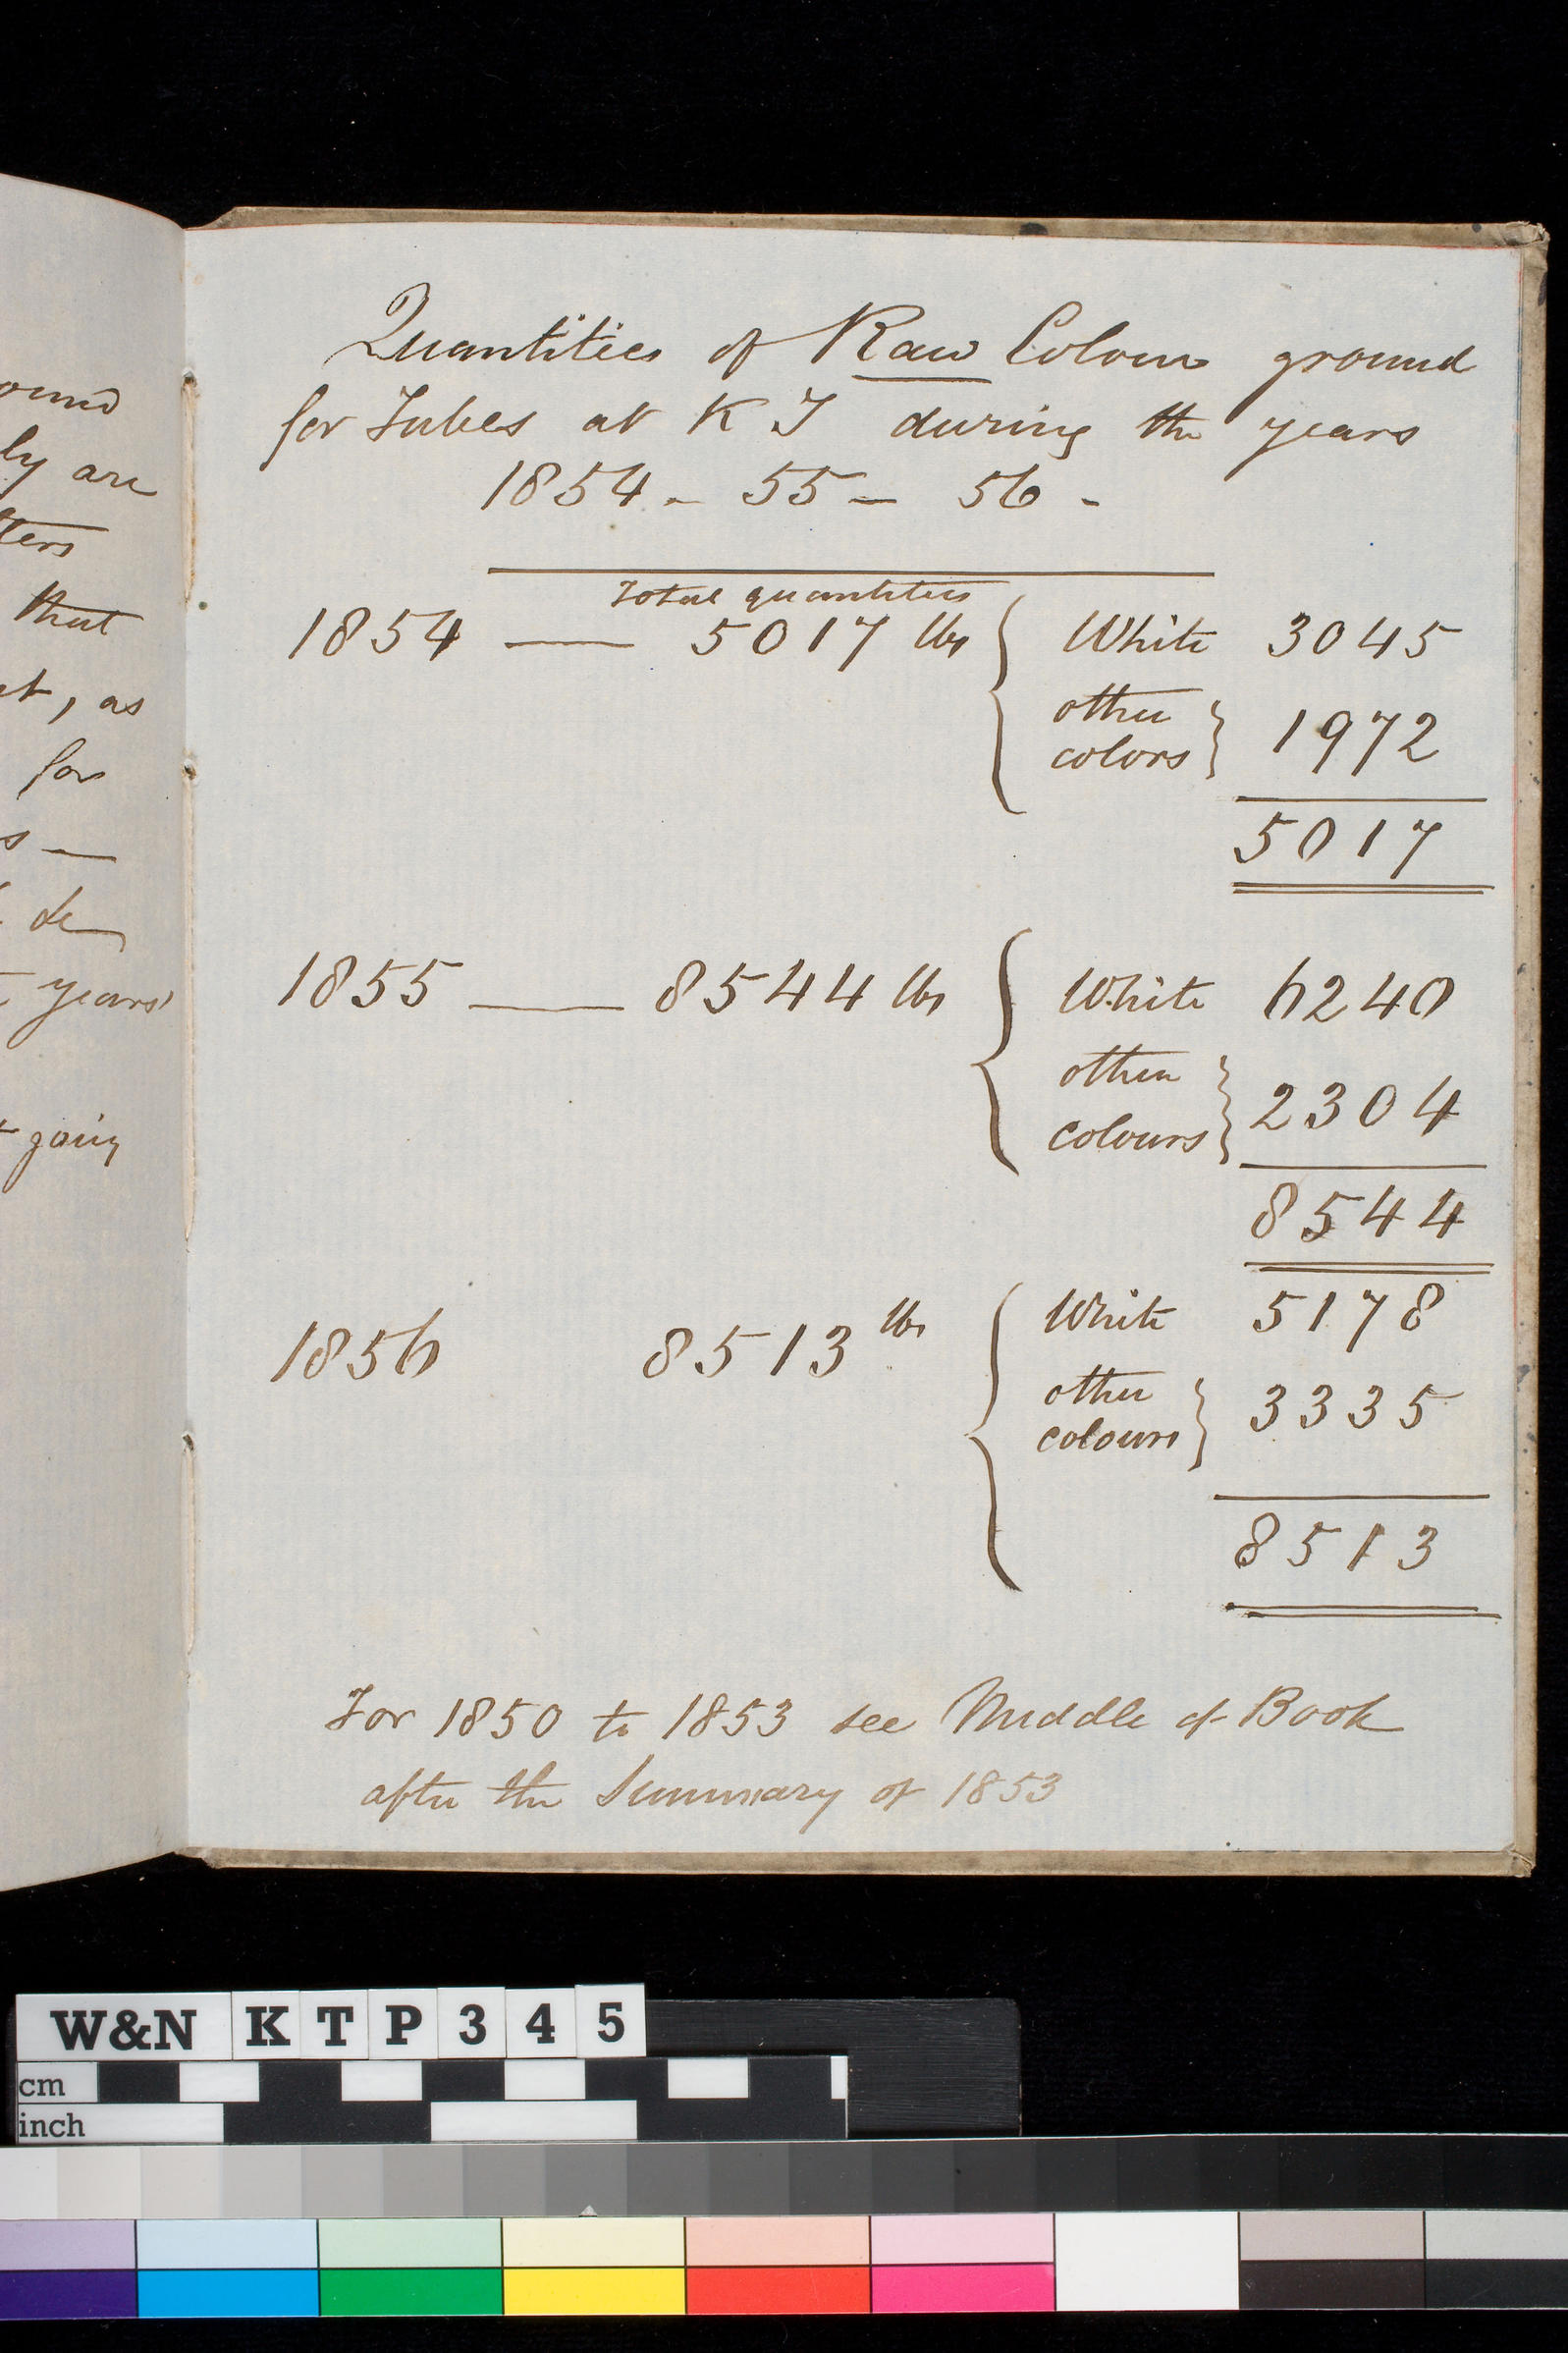 ound
ly are
tters
that
, as
for
s —
de
years
going
Quantities of Raw Colour ground
for Tubes at K T during the years
1854 - 55 - 56 -
Total quantities
1854 — 5017 lbs { White 3045
other
colors } 1972
5017
1855 — 8544 lbs { White 6240
other
colours } 2304
8544
1856 8513 lbs { White 5178
other
colours } 3335
8513
For 1850 to 1853 see Middle of Book
after the Summary of 1853
W&N K T P 3 4 5
cm
inch